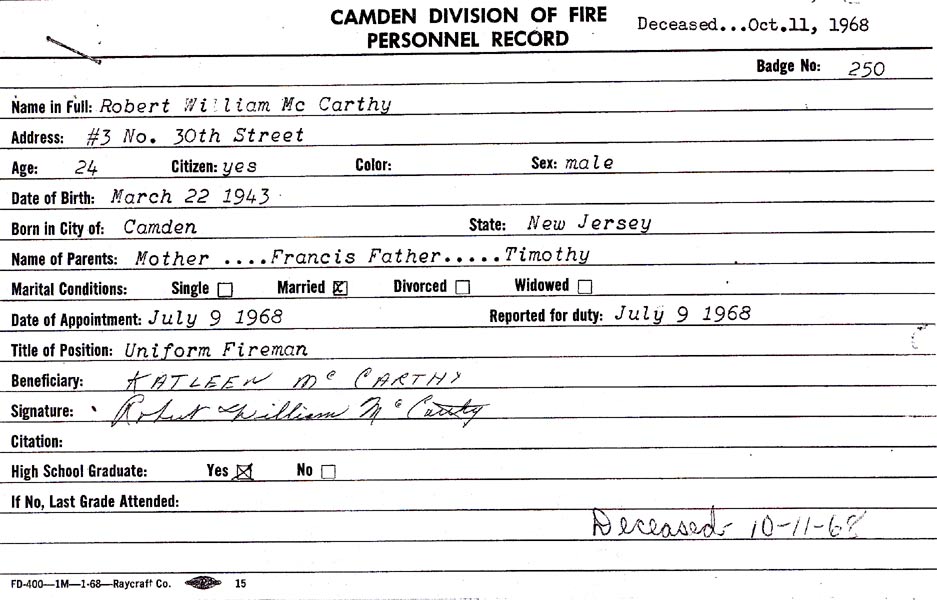 CAMDEN DIVISION OF FIRE
PERSONNEL RECORD
Deceased...Oct.11, 1968
Badge No: 250
Name in Full: Robert William Mc Carthy
Address: #3 No. 30th Street
Age: 24 Citizen: yes Color: Sex: male
Date of Birth: March 22 1943
Born in City of: Camden State: New Jersey
Name of Parents: Mother ....Francis Father.....Timothy
Marital Conditions: Single ☐ Married ☒ Divorced ☐ Widowed ☐
Date of Appointment: July 9 1968 Reported for duty: July 9 1968
Title of Position: Uniform Fireman
Beneficiary: KATLEEN Mc CARTHY
Signature: Robert William Mc Carthy
Citation:
High School Graduate: Yes ☒ No ☐
If No, Last Grade Attended:
Deceased- 10-11-68
FD-400—1M—1-68—Raycraft Co. 15